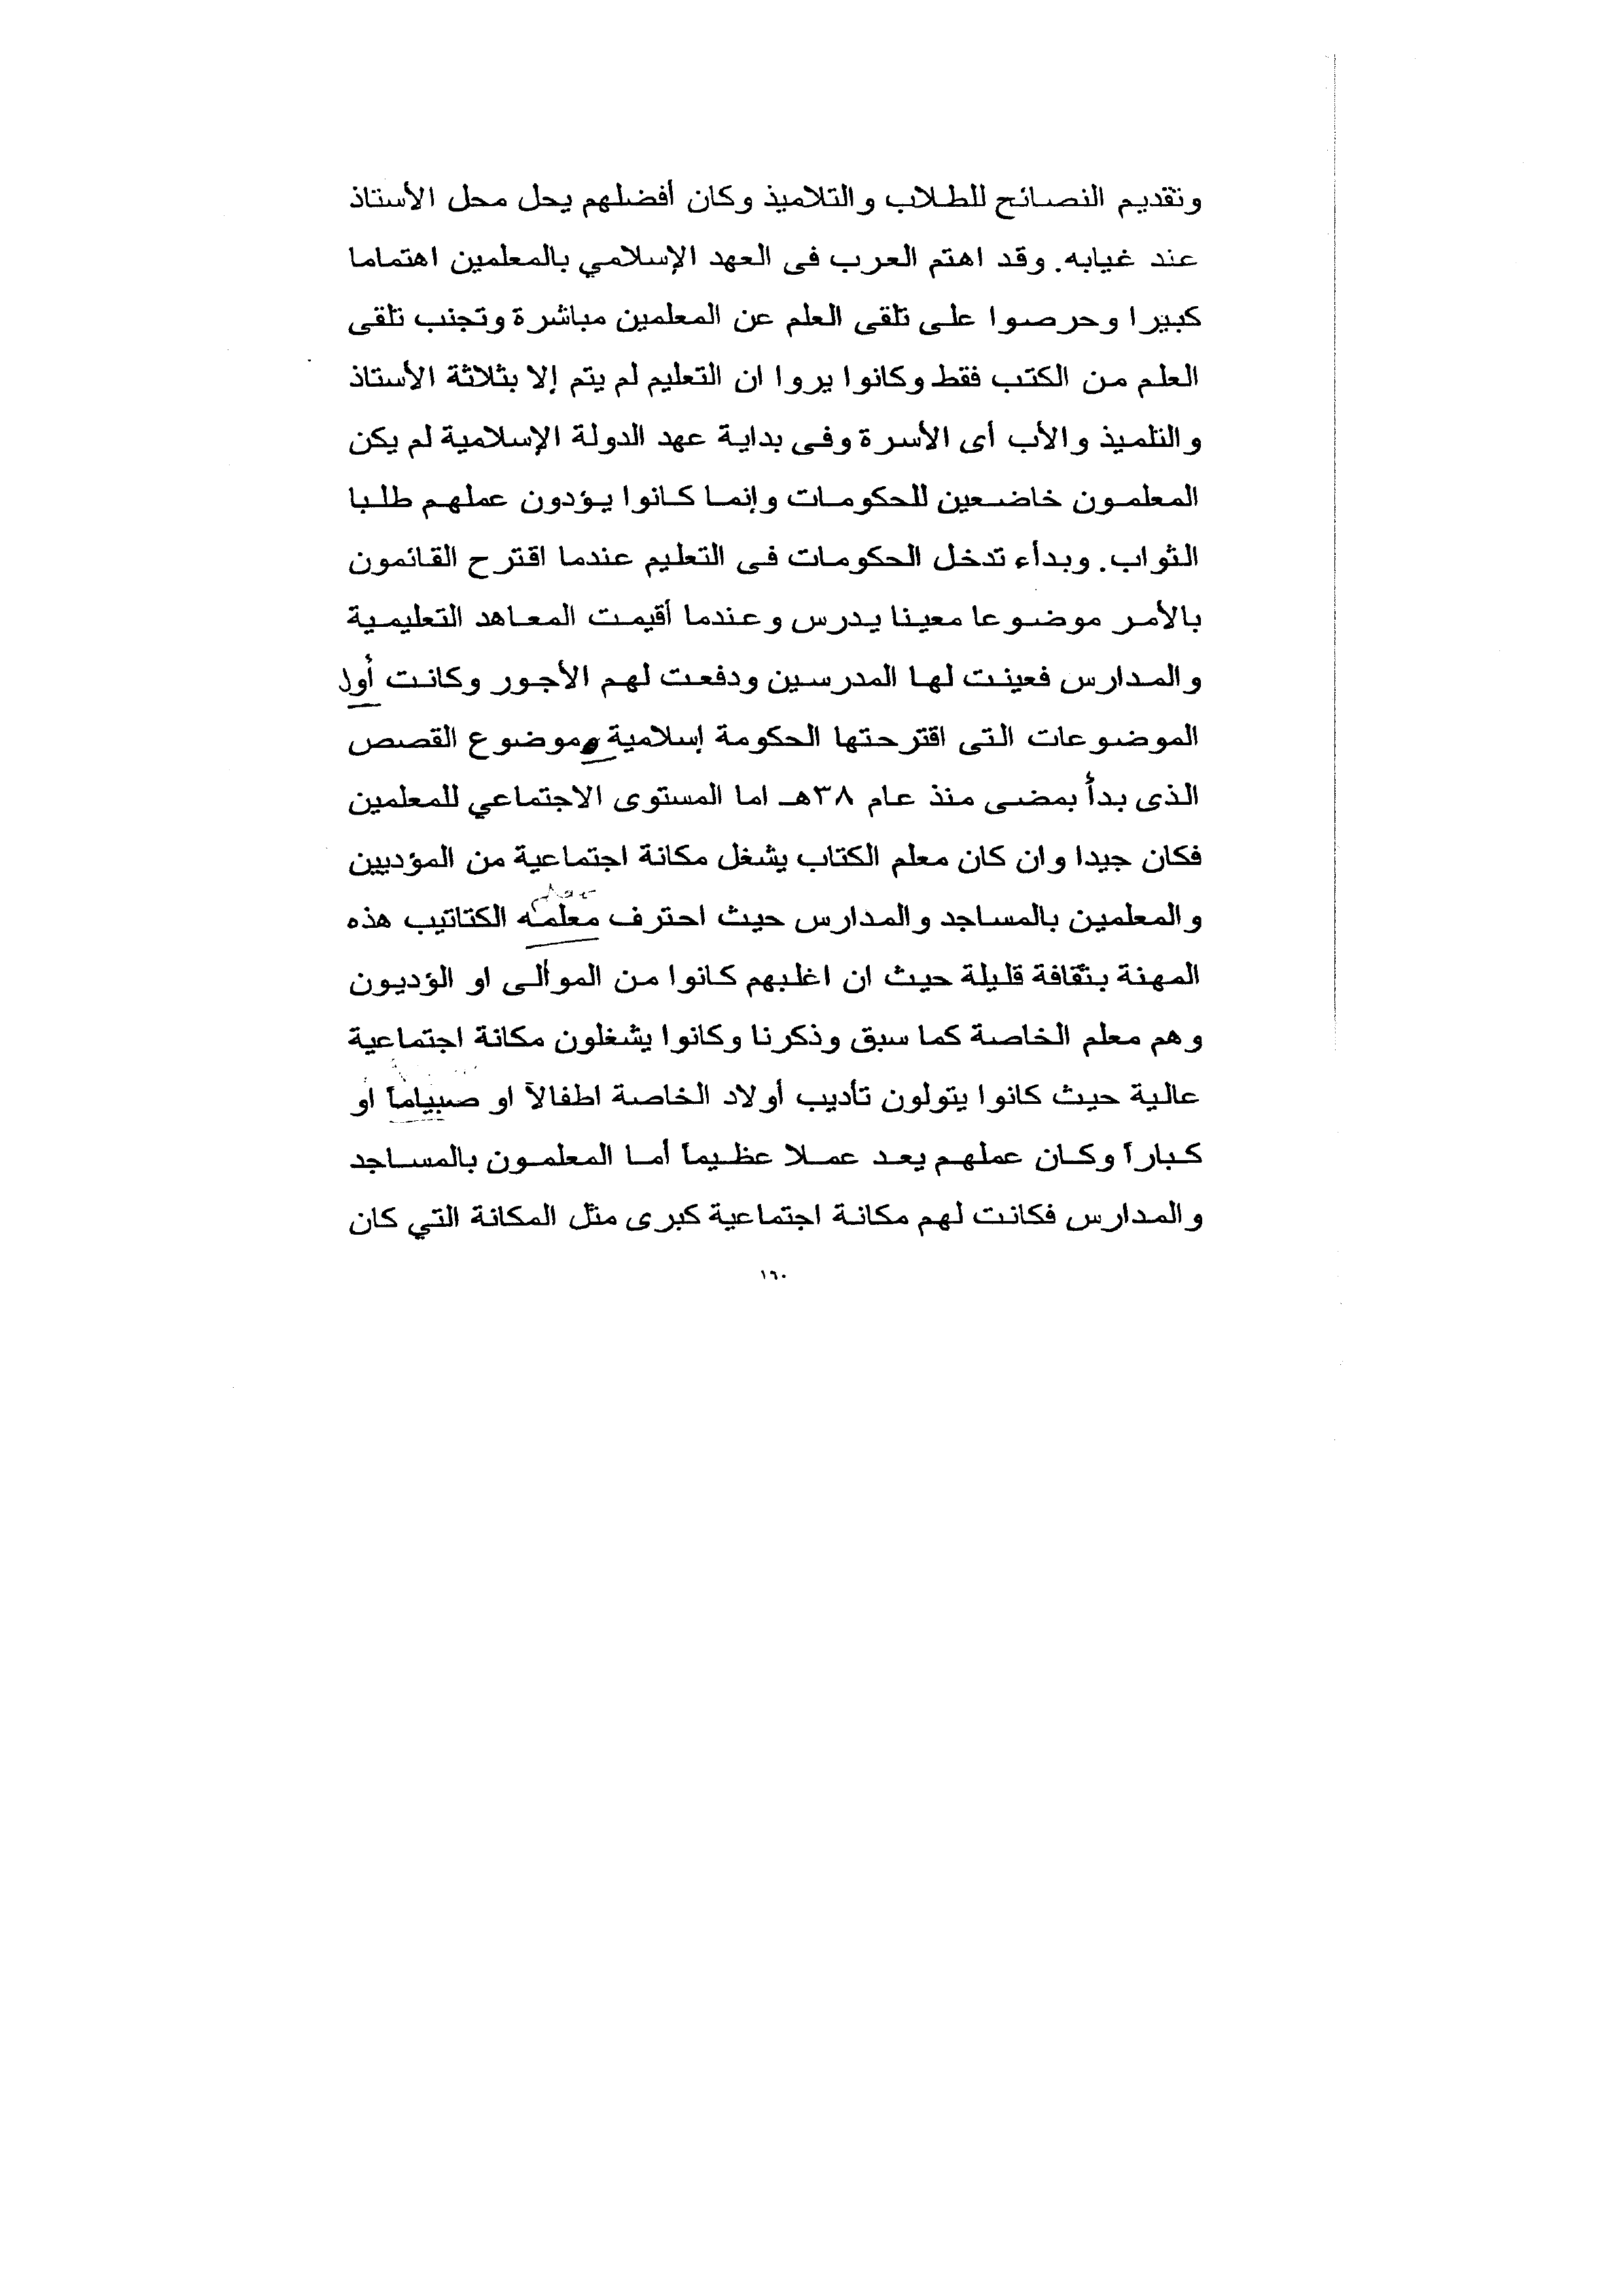 وتقديم النصائح للطلاب والتلاميذ وكان أفضلهم يحل محل الأستاذ
عند غيابه. وقد اهتم العرب فى العهد الإسلامي بالمعلمين اهتماما
كبيرا وحرصوا على تلقى العلم عن المعلمين مباشرة وتجنب تلقى
العلم من الكتب فقط وكانوا يروا ان التعليم لم يتم إلا بثلاثة الأستاذ
والتلميذ والأب أى الأسرة وفى بداية عهد الدولة الإسلامية لم يكن
المعلمون خاضعين للحكومات وإنما كانوا يؤدون عملهم طلبا
الثواب. وبدأء تدخل الحكومات فى التعليم عندما اقترح القائمون
بالأمر موضوعا معينا يدرس وعندما أقيمت المعاهد التعليمية
والمدارس فعينت لها المدرسين ودفعت لهم الأجور وكانت أول
الموضوعات التى اقترحتها الحكومة إسلامية وموضوع القصص
الذى بدأ بمضى منذ عام ٣٨هـ اما المستوى الاجتماعي للمعلمين
فكان جيدا وان كان معلم الكتاب يشغل مكانة اجتماعية من المؤديين
والمعلمين بالمساجد والمدارس حيث احترف معلمه الكتاتيب هذه
المهنة بثقافة قليلة حيث ان اغلبهم كانوا من الموالى او الؤديون
وهم معلم الخاصة كما سبق وذكرنا وكانوا يشغلون مكانة اجتماعية
عالية حيث كانوا يتولون تأديب أولاد الخاصة اطفالاً او صبياماً أو
كباراً وكان عملهم يعد عملا عظيماً أما المعلمون بالمساجد
والمدارس فكانت لهم مكانة اجتماعية كبرى مثل المكانة التي كان
١٦٠